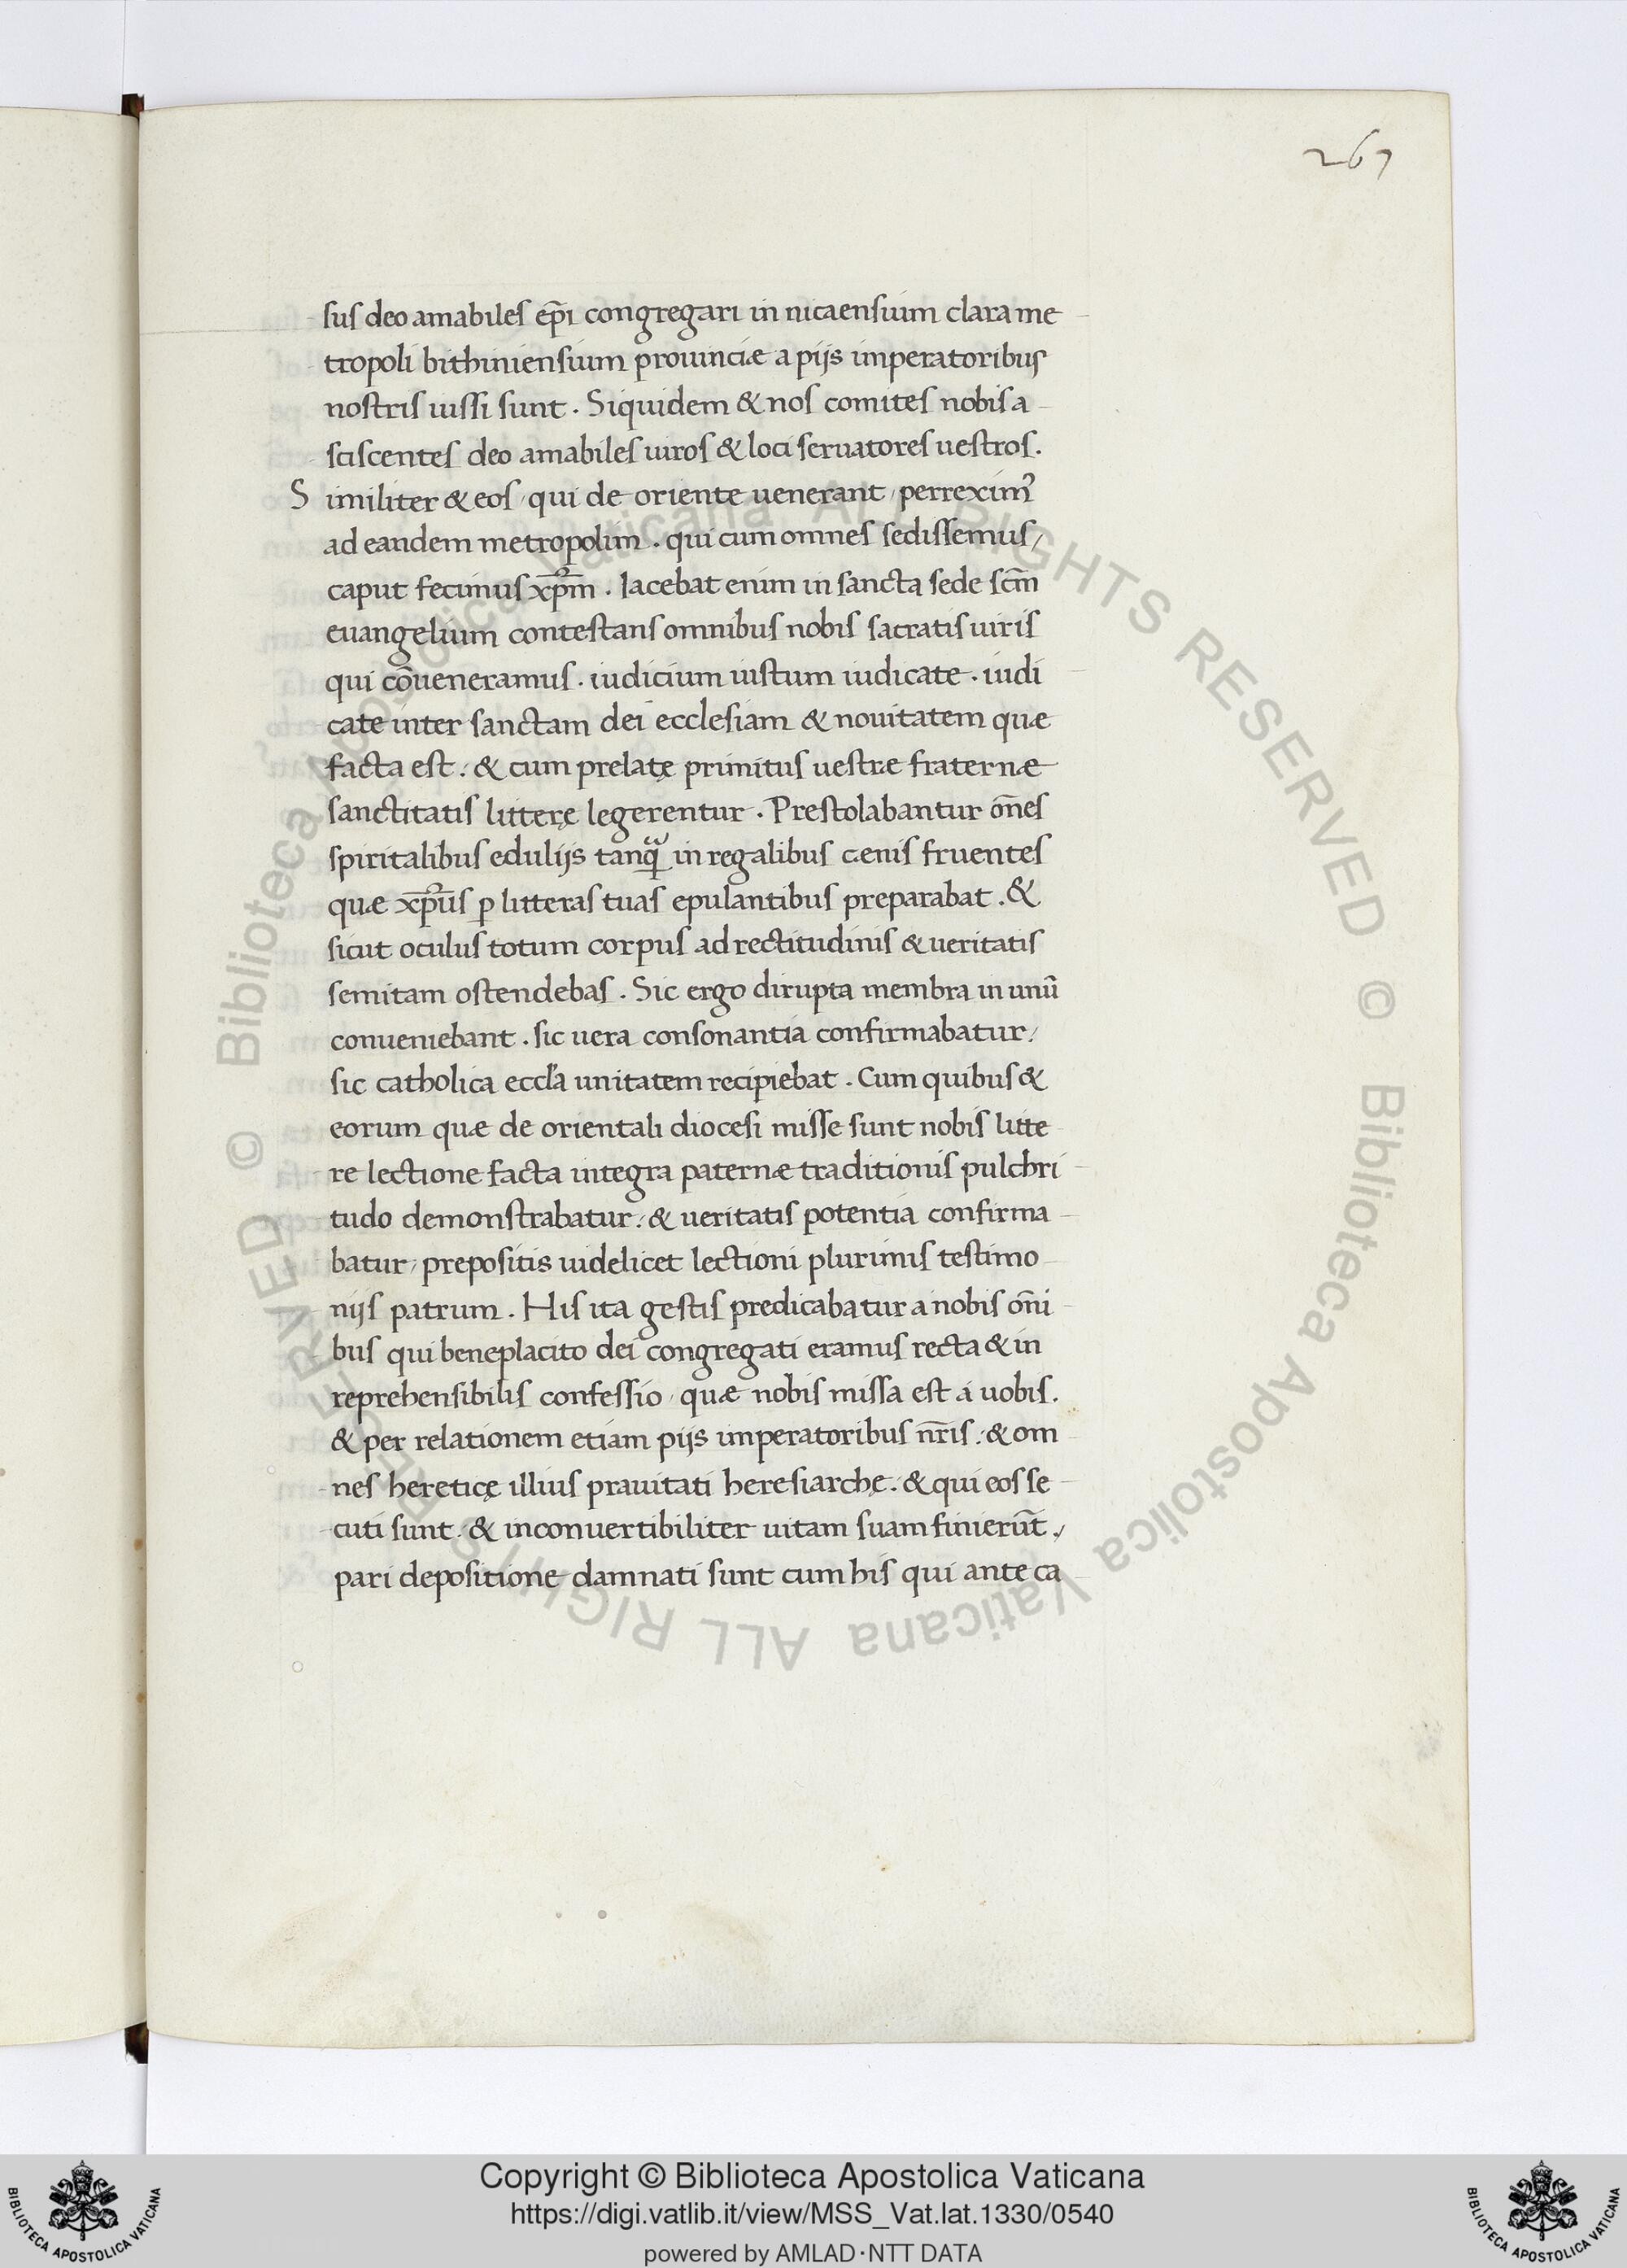 267
sus deo amabiles ep̅i congregari in nicaensium clara me
tropoli bithiniensium prouinciæ a pijs imperatoribus
nostris iussi sunt . Siquidem & nos comites nobis a
sciscentes deo amabiles uiros & loci seruatores uestros.
S imiliter & eos / qui de oriente uenerant / perreximꝰ
ad eandem metropolim . qui cum omnes sedissemus /
caput fecimus xp̅m . Iacebat enim in sancta sede sc̅m
euangelium contestans omnibus nobis sacratis uiris
qui co̅ueneramus . iudicium iustum iudicate . iudi
cate inter sanctam dei ecclesiam & nouitatem quæ
facta est : & cum prelatę primitus uestræ fraternæ
sanctitatis litterę legerentur . Prestolabantur om̅es
spiritalibus edulijs tanꝗᷓ in regalibus cenis fruentes
quæ xp̅us ꝑ litteras tuas epulantibus preparabat . &
sicut oculus totum corpus ad rectitudinis & ueritatis
semitam ostendebas . Sic ergo dirupta membra in unu̅
conueniebant . sic uera consonantia confirmabatur /
sic catholica eccl̅a unitatem recipiebat . Cum quibus &
eorum quæ de orientali diocesi misse sunt nobis litte
re lectione facta integra paternæ traditionis pulchri
tudo demonstrabatur : & ueritatis potentia confirma
batur / prepositis uidelicet lectioni plurimis testimo
nijs patrum . His ita gestis predicabatur a nobis om̅i
bus qui beneplacito dei congregati eramus recta & in
reprehensibilis confessio / quæ nobis missa est á uobis .
& per relationem etiam pijs imperatoribus nr̅is : & om
nes hereticę illius prauitati heresiarchę : & qui eos se
cuti sunt : & inconuertibiliter uitam suam finieru̅t /
pari depositione damnati sunt cum his qui ante ca
© Biblioteca Apostolica Vaticana ALL RIGHTS RESERVED © Biblioteca Apostolica Vaticana ALL RIGHTS RESERVED
Copyright © Biblioteca Apostolica Vaticana
https://digi.vatlib.it/view/MSS_Vat.lat.1330/0540
powered by AMLAD·NTT DATA
BIBLIOTECA APOSTOLICA VATICANA
BIBLIOTECA APOSTOLICA VATICANA